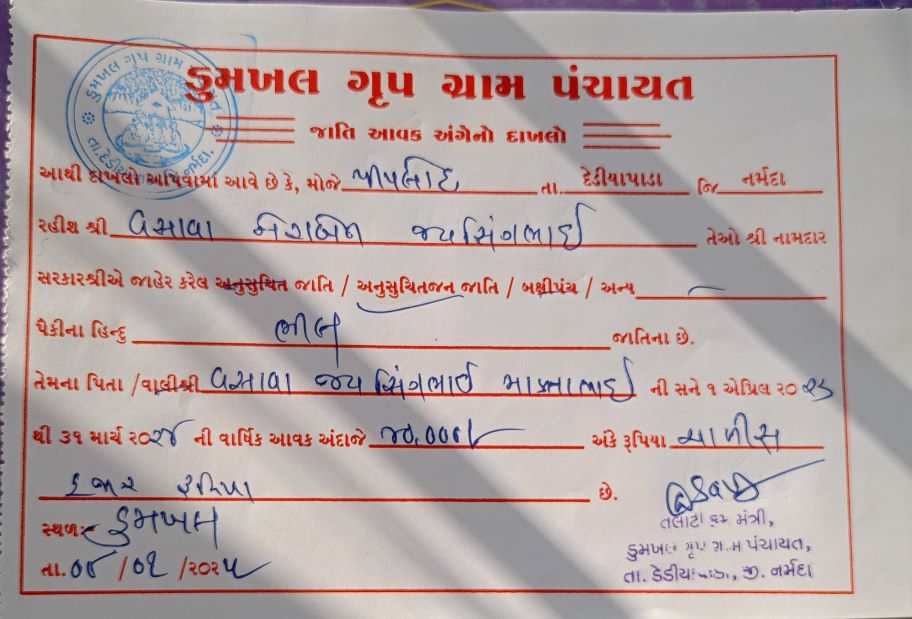 ડુમખલ ગૃપ ગ્રામ પંચાયત
જાતિ આવક અંગેનો દાખલો
આથી દાખલો આપવામાં આવે છે કે, મોજે પીપલોદ તા. દેડીયાપાડા જિ નર્મદા
રહીશ શ્રી વસાવા જયસિંગભાઈ તેઓ શ્રી નામદાર
સરકારશ્રીએ જાહેર કરેલ અનુસુચિત જાતિ / અનુસુચિતજન જાતિ / બક્ષીપંચ / અન્ય
પૈકીના હિન્દુ ભીલ જાતિના છે.
તેમના પિતા /વાલીશ્રી વસાવા જયસિંગભાઈ ની સને ૧ એપ્રિલ ૨૦૨૩
થી ૩૧ માર્ચ ૨૦૨૪ ની વાર્ષિક આવક અંદાજે ૪૦,૦૦૦/- અંકે રૂપિયા ચાળીસ
હજાર રૂપિયા છે.
સ્થળઃ ડુમખલ
તા. ૦૪ /૦૧ /૨૦૨૫
તલાટી કમ મંત્રી,
ડુમખલ ગૃપ ગ્રામ પંચાયત,
તા. ડેડીયાપાડા, જી. નર્મદા